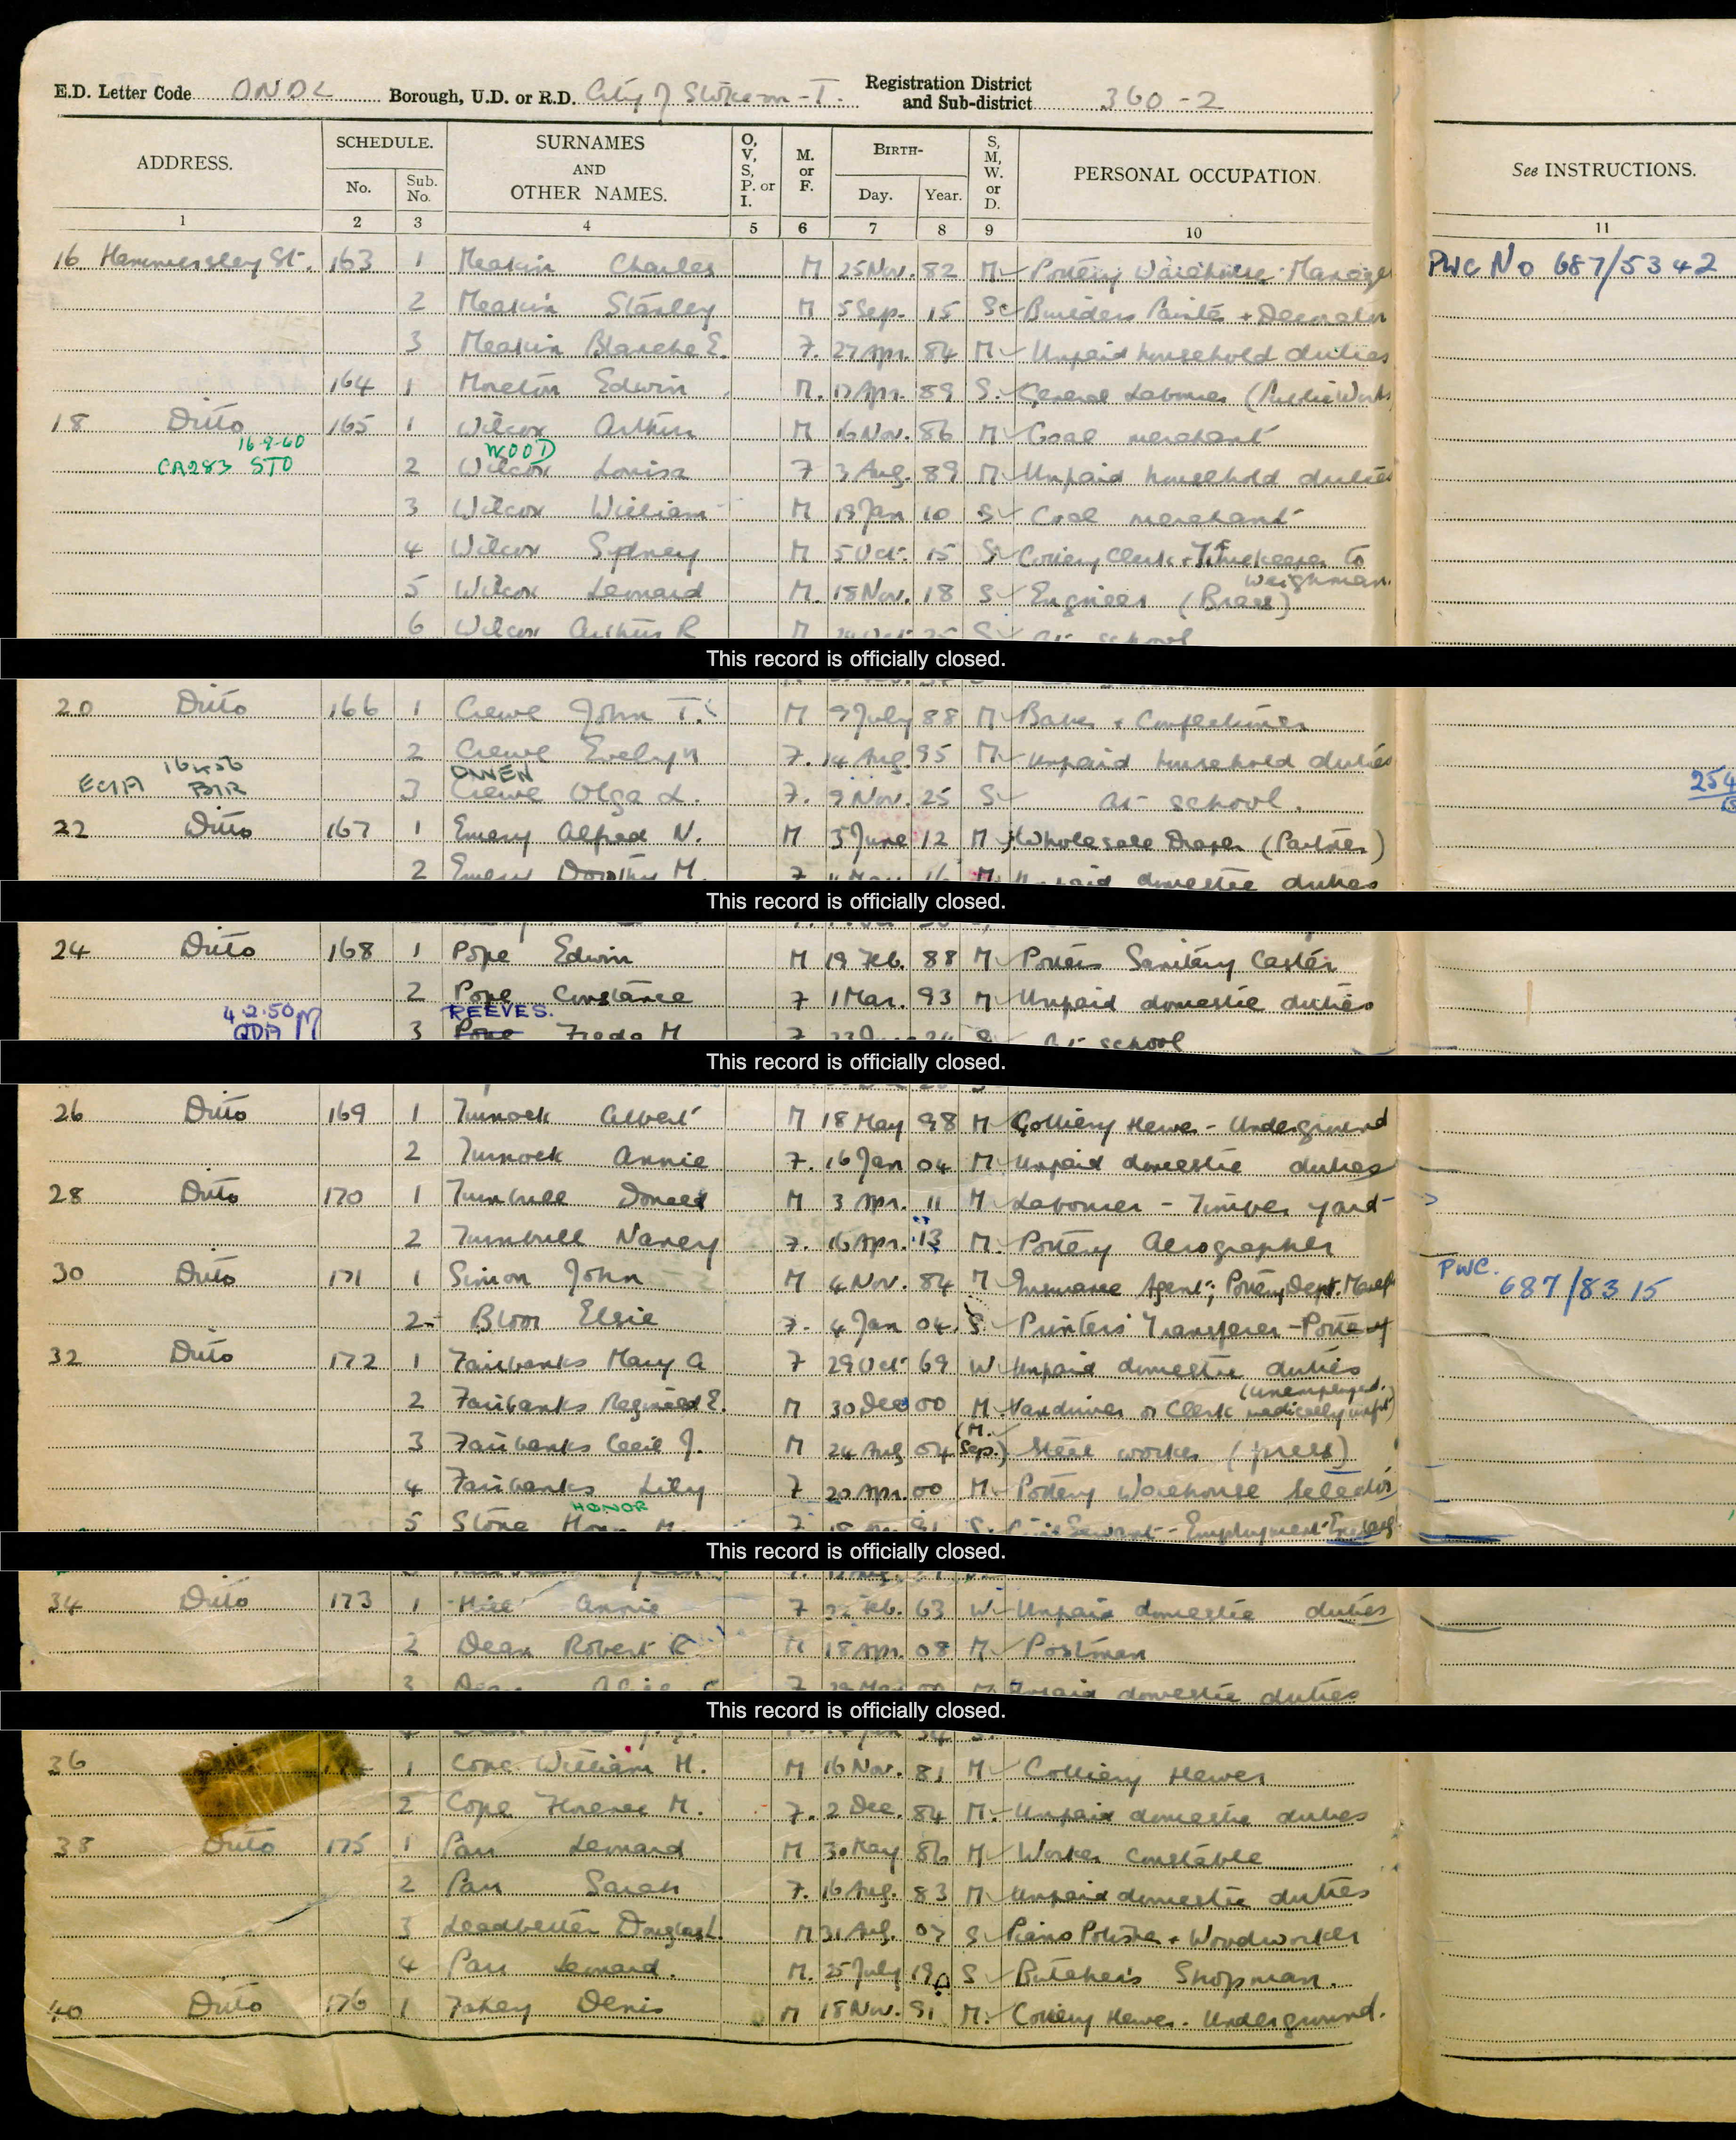 E.D. Letter Code ONDL Borough, U.D. or R.D. City of Stoke-on-T. Registration District and Sub-district 360-2
ADDRESS. SCHEDULE. No. Sub. No. SURNAMES AND OTHER NAMES. O, V, S, P. or I. M. or F. BIRTH- Day. Year. S, M, W. or D. PERSONAL OCCUPATION. See INSTRUCTIONS.
1 2 3 4 5 6 7 8 9 10 11
16 Hammersley St. 163 1 Meakin Charles M 25 Nov. 82 M Pottery Warehouse Manager PWC No 687/5342
2 Meakin Stanley M 5 Sep. 15 S Builders Painter + Decorator
3 Meakin Blanche E. F. 27 Apr. 84 M Unpaid household duties
164 1 Moreton Edwin M. Apr. 89 S. General Labourer (Public Works
18 Ditto 165 1 Wilcox Arthur M 16 Nov. 86 M Coal merchant
16-9-60 WOOD
CA283 STO 2 Wilcox Louisa F 3 Aug. 89 M Unpaid household duties
3 Wilcox William M 19 Jan 10 S Coal merchant
4 Wilcox Sydney M 5 Oct. 15 S Colliery Clerk + Timekeeper to
weighman
5 Wilcox Leonard M. 18 Nov. 18 S Engineer (Brass)
6 Wilcox Arthur R M 25 S At school
This record is officially closed.
20 Ditto 166 1 Crewe John T. M 9 July 88 M Baker + Confectioner
2 Crewe Evelyn F. 14 Aug. 95 M Unpaid household duties
OWEN
BIR 3 Crewe Olga L. F. 9 Nov. 25 S At school. 254
22 Ditto 167 1 Emery Alfred N. M 3 June 12 M Wholesale Draper (Partner)
2 Emery Dorothy M. F 16 M Unpaid domestic duties
This record is officially closed.
24 Ditto 168 1 Pope Edwin M 19 Feb. 88 M Potters Sanitary Caster
2 Pope Constance F 1 Mar. 93 M Unpaid domestic duties
4.2.50 REEVES.
M 3 Pope Freda M F S At school
This record is officially closed.
26 Ditto 169 1 Turnock Albert M 18 May 98 M Colliery Hewer - Underground
2 Turnock Annie F. 16 Jan 04 M Unpaid domestic duties
28 Ditto 170 1 Turnbull Donald M 3 Apr. 11 M Labourer - Timber yard
2 Turnbull Nancy F. 16 Apr. 13 M. Pottery Aerographer
30 Ditto 171 1 Simon John M 4 Nov. 84 M Insurance Agent; Pottery Dept. PWC. 687/8315
2 Bloor Elsie F. 4 Jan 04. S. Printers Transferer - Pottery
32 Ditto 172 1 Fairbanks Mary A F 29 Oct 69 W Unpaid domestic duties
2 Fairbanks Reginald E. M 30 Dec 00 M Vandriver or Clerk (unemployed. medically unfit)
3 Fairbanks Cecil J. M 24 Aug 04 (M. Sep.) Steel worker (press)
4 Fairbanks Lily F 20 Apr. 00 M. Pottery Warehouse Selector
HONOR
5 Stone M. F 91 S. Civil Servant - Employment Exchang
This record is officially closed.
34 Ditto 173 1 Hill Annie F Feb. 63 W Unpaid domestic duties
2 Dean Robert R M 18 Apr. 08 M Postman
3 Dean F M Unpaid domestic duties
This record is officially closed.
36 1 Cope William H. M 16 Nov. 81 M Colliery Hewer
2 Cope Florence M. F. 2 Dec. 84 M. Unpaid domestic duties
38 Ditto 175 1 Parr Leonard M 30 May 86 M Works Constable
2 Parr Sarah F. 16 Aug. 83 M Unpaid domestic duties
3 Leadbetter Douglas L. M 31 Aug. 07 S Piano Polisher + Woodworker
4 Parr Leonard. M. 25 July 19 S Butchers Shopman.
40 Ditto 176 1 Fahey Denis M 18 Nov. 91 M. Colliery Hewer. Underground.